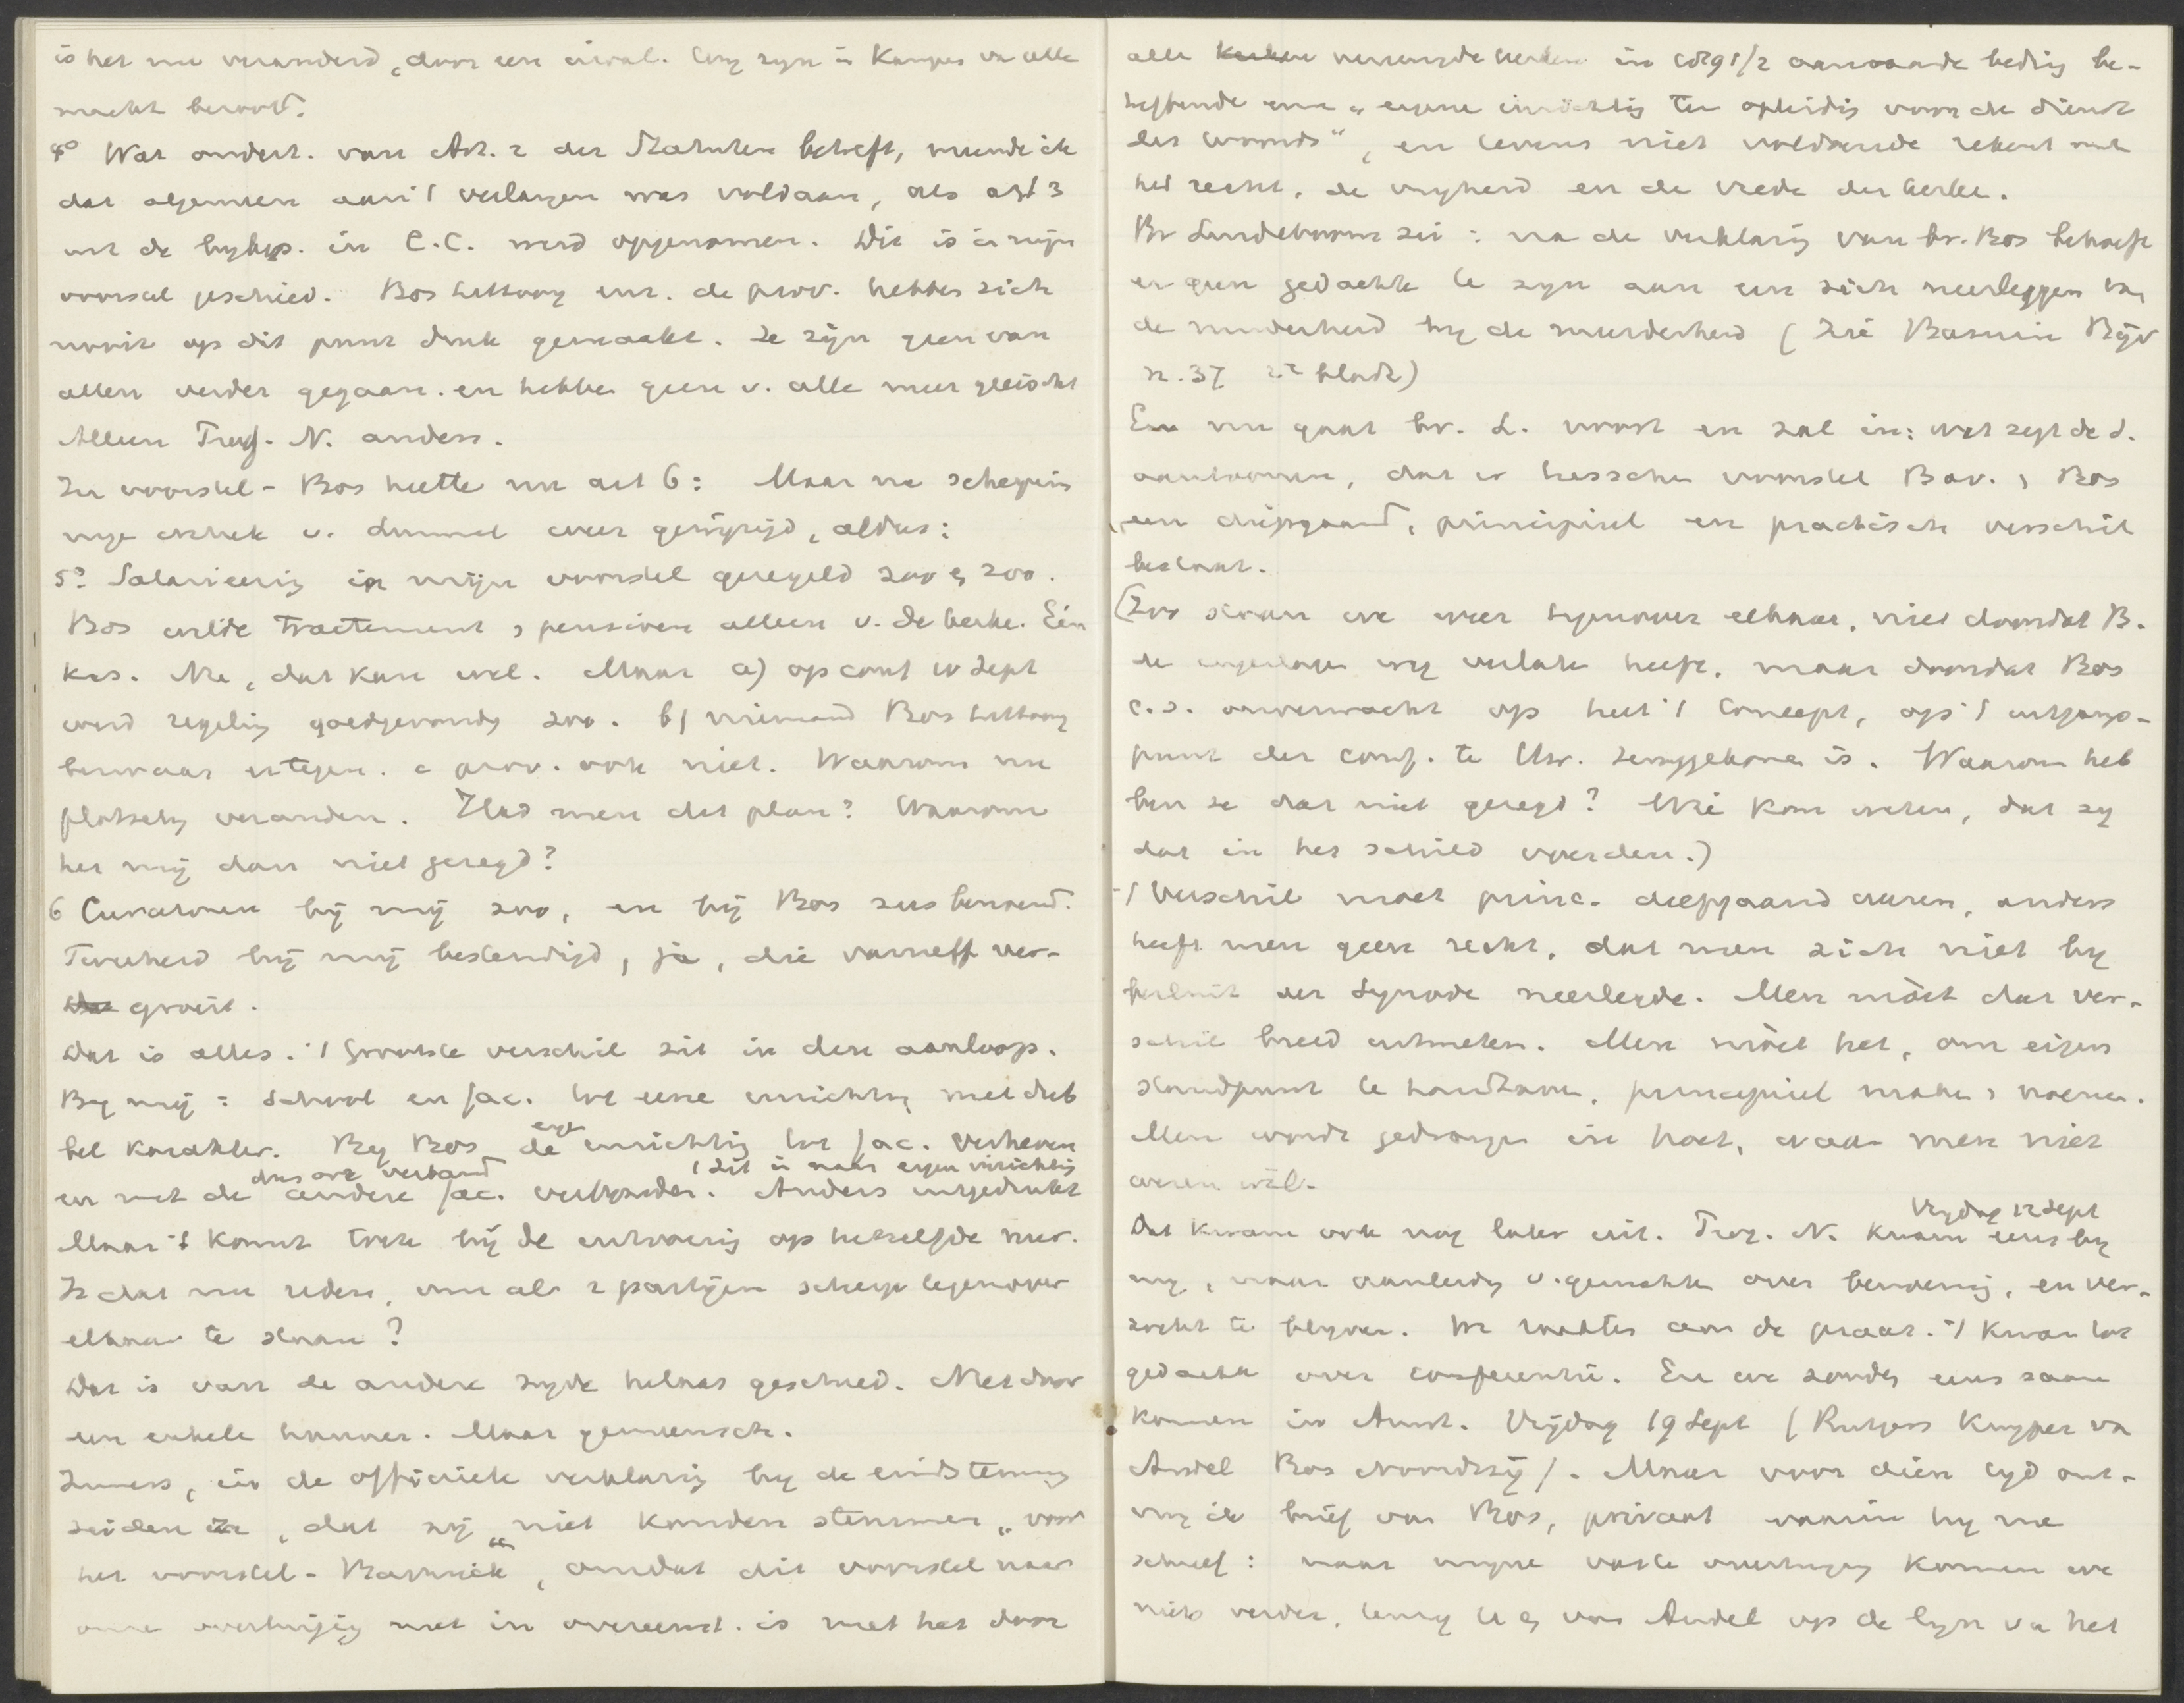 is het nu veranderd, door een rival. Wij zijn in Kampen van alle
macht beroofd.
4° Wat onderh. van Art. 2 der Statuten betreft, meende ik
dat algemeen aan 't verlangen was voldaan, als art 3
uit de bylage in C.C. werd opgenomen. Dit is in mijn
voorstel geschied. Bos Littooy enz. de prov. hebben zich
nooit op dit punt druk gemaakt. Ze zijn geen van
allen verder gegaan. en hebben geen v. alle meer geëischt
Alleen Treg. N. anders.
In voorstel-Bos heette nu art 6: Maar na schepping
werd weer gewijzigd, aldus:
5° Salarieering in mijn voorstel geregeld zoo en zoo.
Bos wilde tractement, pensioen alleen v. de kerke. Één
kas. Nu, dat kan wel. Maar a) op conf 10 Sept
werd regeling goedgevonden zoo. b) niemand Bos Littooy
bezwaar ertegen. c prov. ook niet. Waarom nu
plotseling veranderen. Had men dat plan? Waarom
het mij dan niet gezegd?
6 Curatoren bij mij zoo, en bij Bos zus benoemd.
Tweeheid bij mij bestendigd, ja, die vanzelf ver-
groeit.
Dat is alles. 't Grootste verschil zit in den aanloop.
By mij: School en fac. tot eene inrichting met dub
bel karakter. By Bos de eigen inrichting tot fac. verheven
dus ook verband ('t Zit in naar eigen inrichting
en met de andere fac. verbonden. Anders uitgedrukt
Maar 't komt toch bij de uitvoering op hetzelfde neer.
Is dat nu reden, om als 2 partijen scherp tegenover
elkaar te staan?
Dat is van de andere zijde helaas geschied. Niet door
een enkele hunner. Maar gemeensch.
Immers, in de officieele verklaring by de eindstemming
zeiden ze, dat zij "niet konden stemmen "voor
het voorstel-Bavinck", omdat dit voorstel naar
onze overtuiging niet in overeenst. is met het door
alle kerken vereenigde kerken in 1891/2 aanvaarde beding be-
treffende eene "eigene inrichting ter opleiding voor de dienst
des Woords", en tevens niet voldoende rekent met
het recht, de vrijheid en de vrede der kerke.
Br Lindeboom zei: na de verklaring van br. Bos behoeft
er geen gedachte te zijn aan een zich neerleggen van
de minderheid by de meerderheid (Zie Bazuin Bijv
n. 37 2e bladz)
En nu gaat br. L. voort en zal in: wat zegt de S.
aantoonen, dat er tusschen voorstel Bav. en Bos
een diepgaand, principieel en practisch verschil
bestaat.
(Zoo staan we weer tegenover elkaar, niet doordat B.
de ingeslagen weg verlaten heeft, maar doordat Bos
c.s. onverwacht op heel 't Concept, op 't uitgangs-
punt der conf. te Utr. teruggekomen is. Waarom heb
ben ze dat niet gezegd? Wie kon weten, dat zy
dat in het schild voerden.)
't Verschil moet princ. diepgaand wezen, anders
heeft men geen recht, dat men zich niet by
besluit der Synode neerlegde. Men móet dat ver-
schil breed uitmeten. Men móet het, om eigen
standpunt te handhaven, principieel maken en noemen.
Men wordt gedrongen in hoek, waar men niet
wezen wil.
Vrydag 12 Sept
Dat kwam ook nog later uit. Treg. N. kwam eens by
my, naar aanleiding v. geruchten over benoeming, en ver-
zocht te blyven. We raakten aan de praat. 't Kwam tot
gedachte over conferentie. En we zouden eens saam
komen in Amst. Vrijdag 19 Sept (Rutgers Kuyper van
Andel Bos Noordtzij). Maar voor dien tyd ont-
ving ik brief van Bos, privaat waarin hij me
schreef: naar mijne vaste overtuiging komen we
niets verder, tenzij U en van Andel op de lijn van het